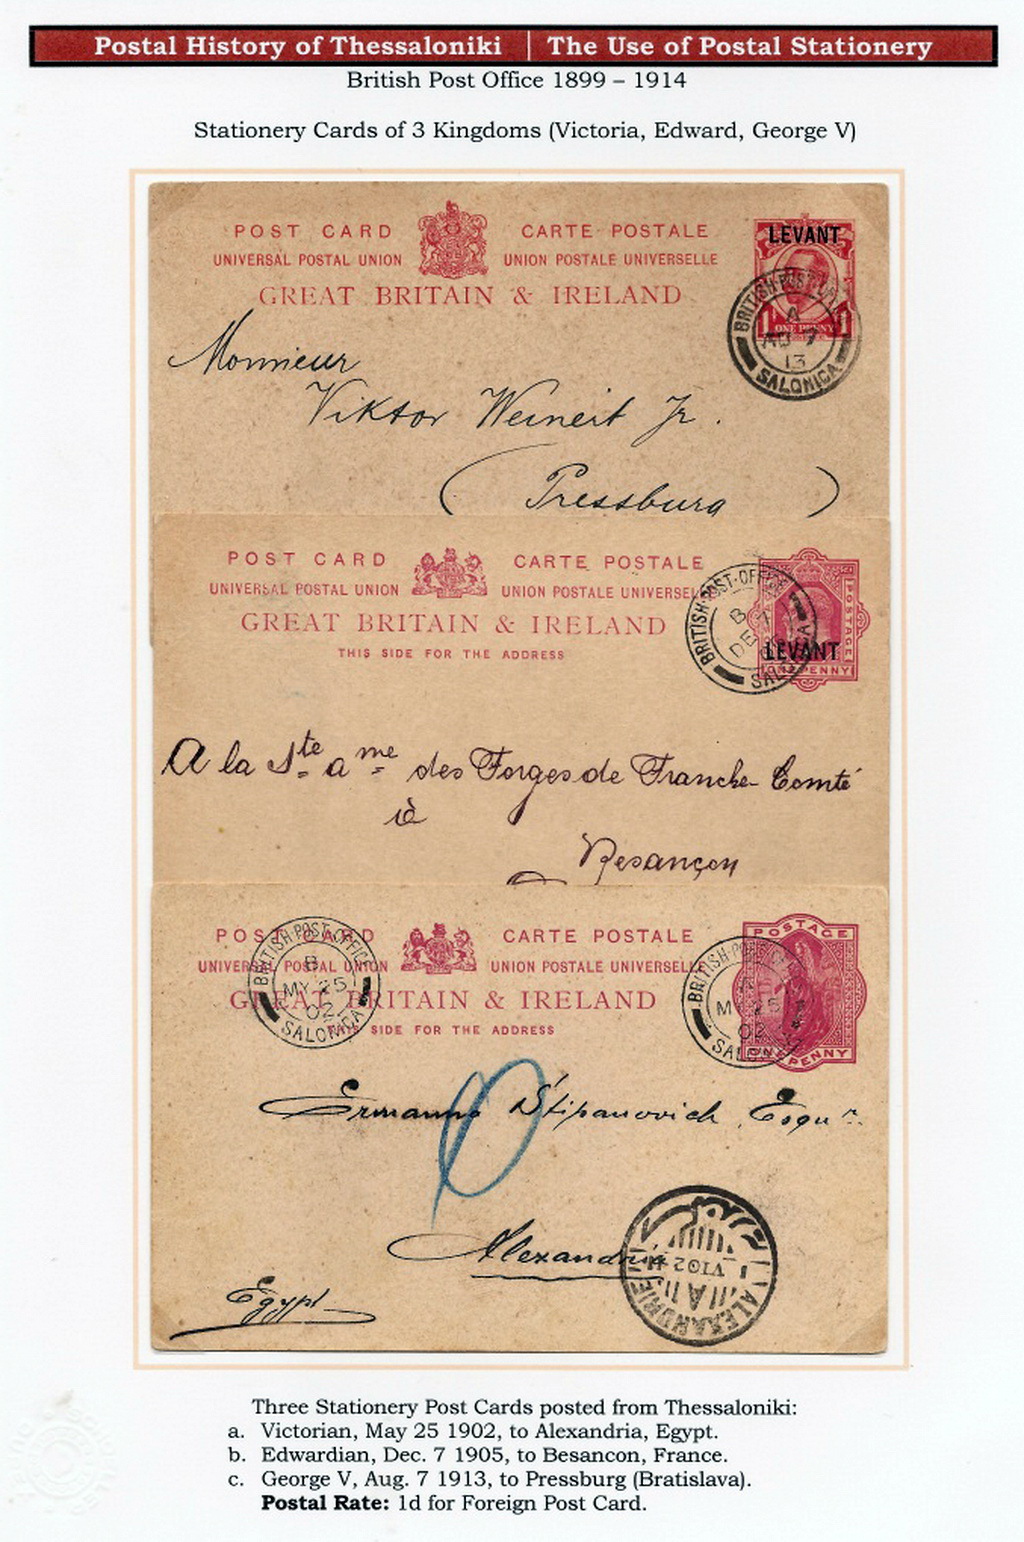 Postal History of Thessaloniki | The Use of Postal Stationery
British Post Office 1899 – 1914
Stationery Cards of 3 Kingdoms (Victoria, Edward, George V)
POST CARD CARTE POSTALE
UNIVERSAL POSTAL UNION UNION POSTALE UNIVERSELLE
GREAT BRITAIN & IRELAND
LEVANT
1 ONE PENNY 1
BRITISH POST
A
AU 7
13
SALONICA
Monsieur
Viktor Weinert Jr.
( Pressburg )
POST CARD CARTE POSTALE
UNIVERSAL POSTAL UNION UNION POSTALE UNIVERSELLE
GREAT BRITAIN & IRELAND
THIS SIDE FOR THE ADDRESS
BRITISH POST-OFFICE
B
DE 7
POSTAGE
LEVANT
ONE PENNY
A la Ste ame des Forges de Franche-Comté
à
Besançon
POST CARD CARTE POSTALE
UNIVERSAL POSTAL UNION UNION POSTALE UNIVERSELLE
GREAT BRITAIN & IRELAND
THIS SIDE FOR THE ADDRESS
BRITISH POST-OFFICE
B
MY 25
02
SALONICA
POSTAGE
ONE PENNY
BRITISH POST-OFFICE
MY 25
02
SALONICA
Ermanno Stipanovich Esqur.
Alexandria
Egypt
ALEXANDRIE
Three Stationery Post Cards posted from Thessaloniki:
a. Victorian, May 25 1902, to Alexandria, Egypt.
b. Edwardian, Dec. 7 1905, to Besancon, France.
c. George V, Aug. 7 1913, to Pressburg (Bratislava).
Postal Rate: 1d for Foreign Post Card.